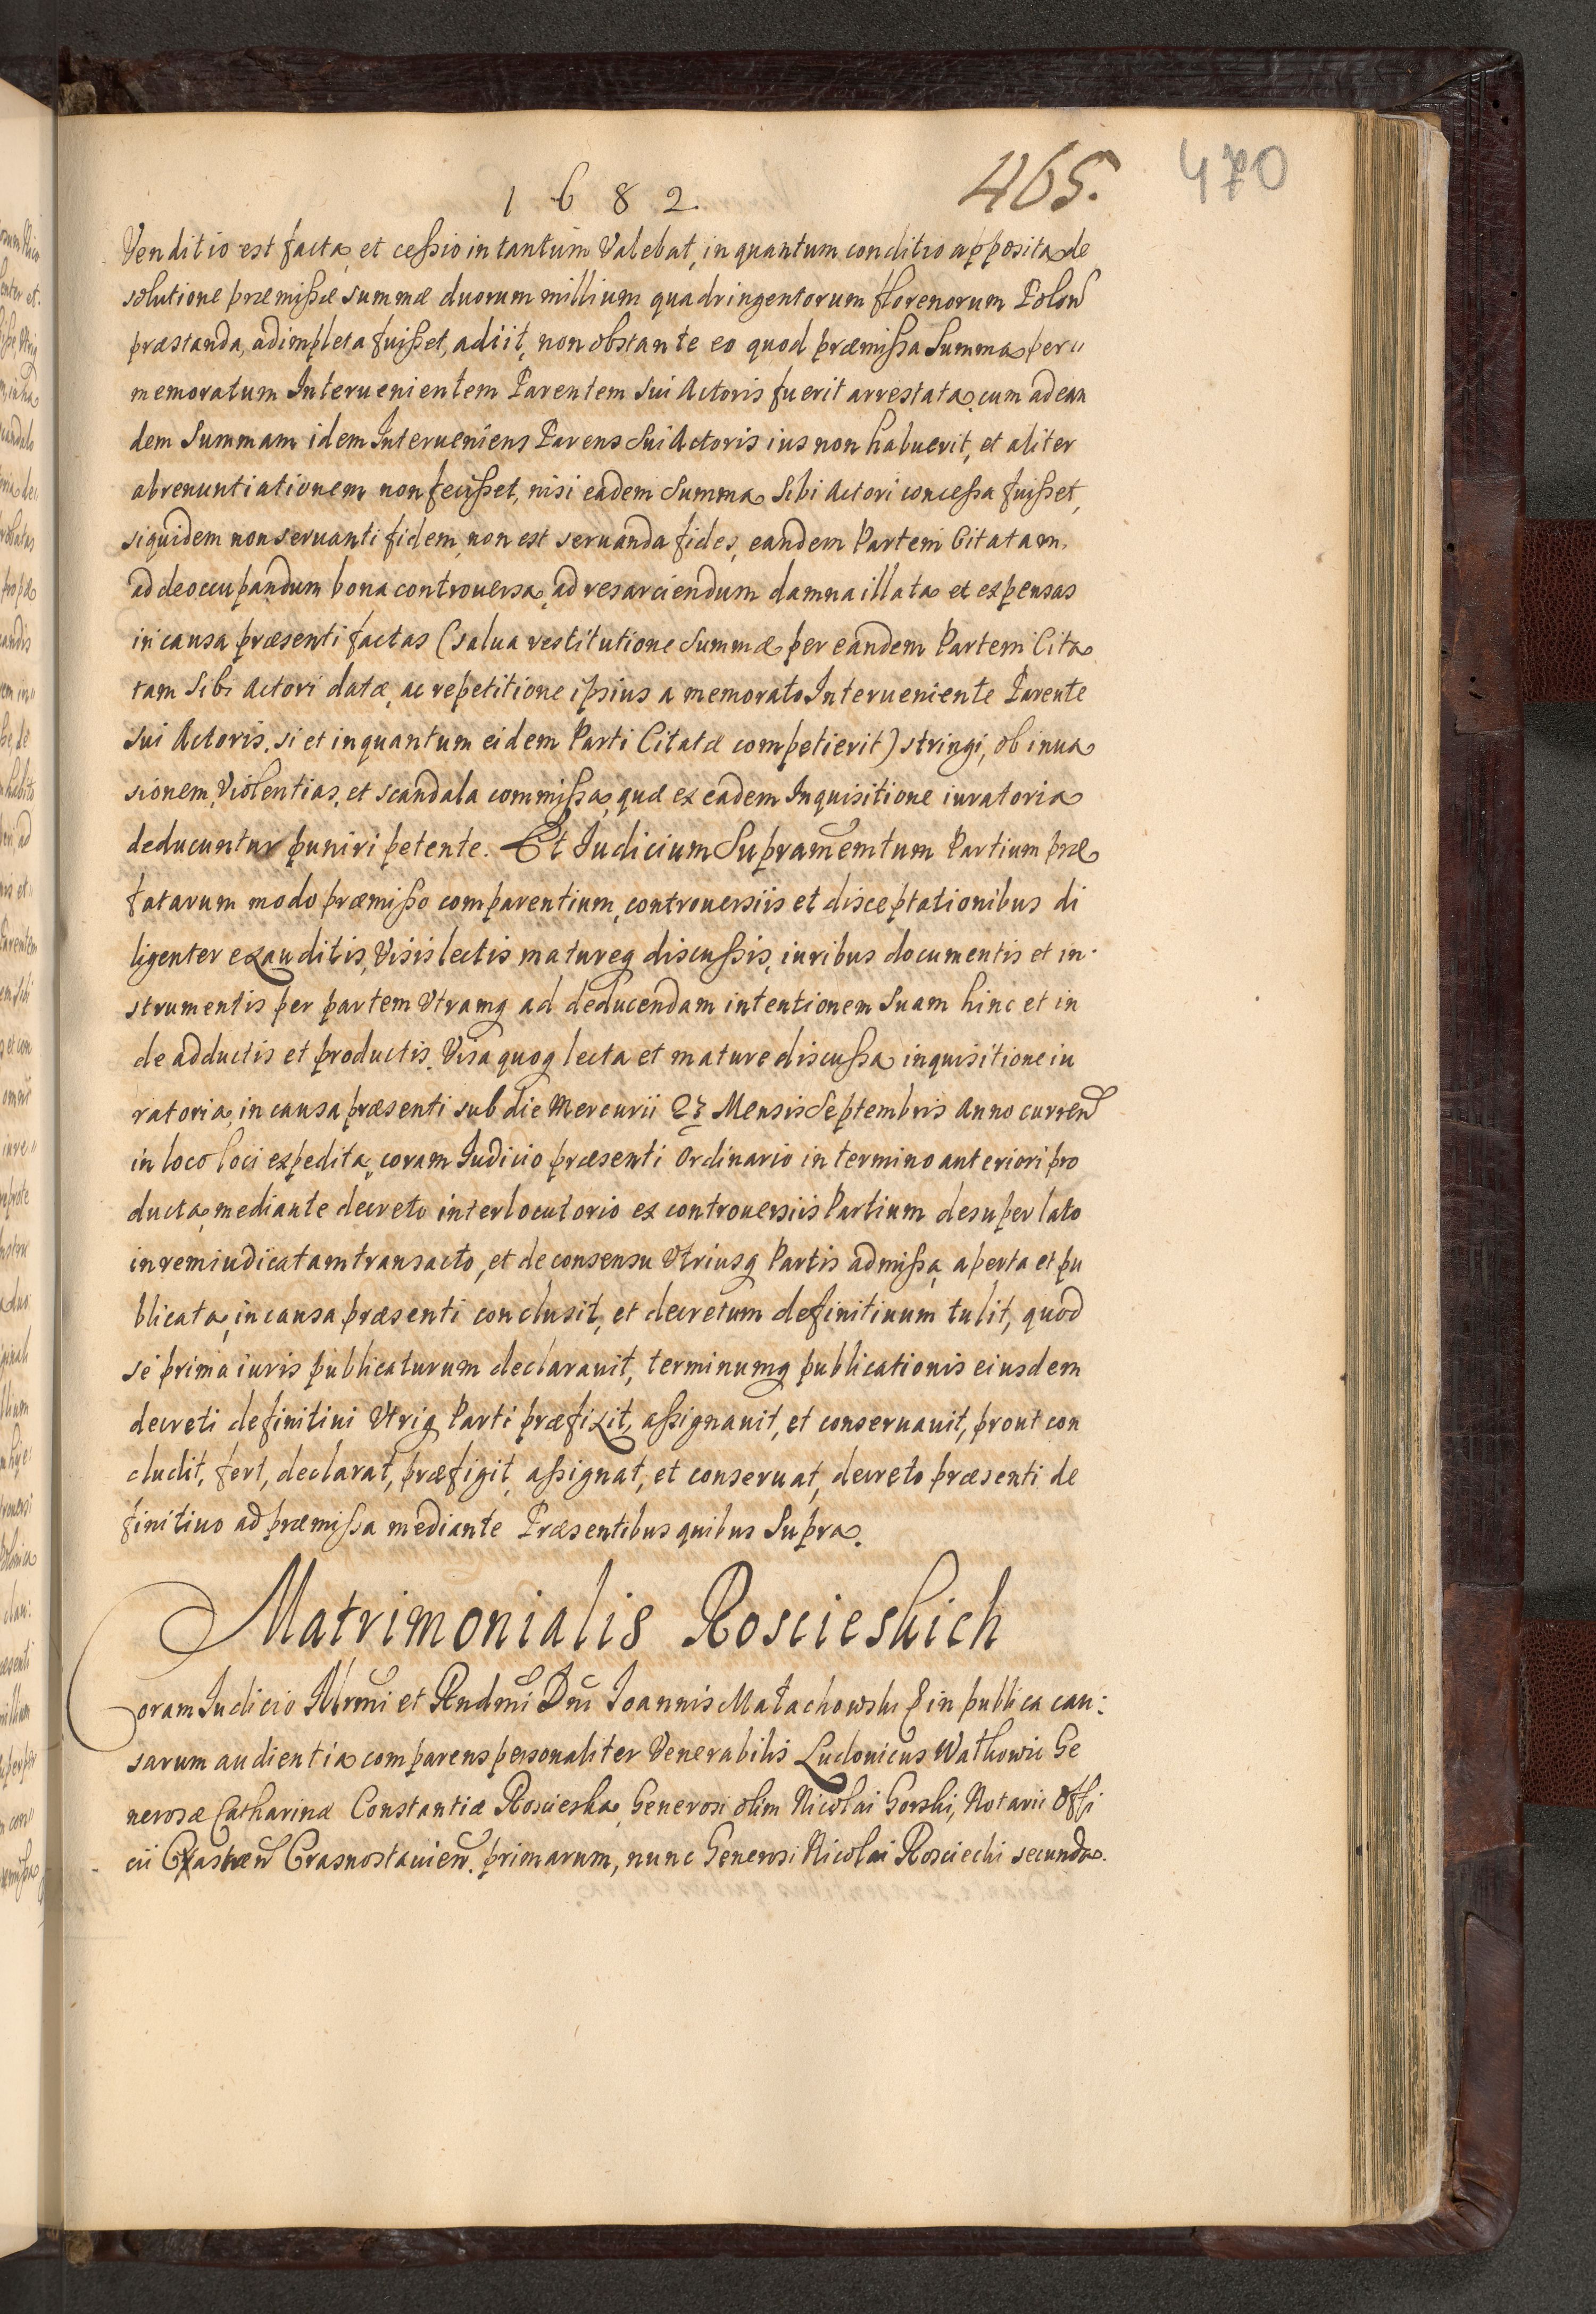 1682.
465.
470
Venditio est facta, et cessio in tantum Valebat, in quantum conditio apposita de
solutione præmissæ summæ duorum millium quadringentorum florenorum Polon
præstanda, adimpleta fuisset, adiit, non obstante eo quod præmissa Summa per"
memoratum Interuenientem Parentem Sui Actoris fuerit arrestata, cum ad ean
dem Summam idem Interueniens Parens Sui Actoris ius non habuerit, et aliter
abrenuntiationem non fecisset, nisi eadem Summa Sibi Actori concessa fuisset,
siquidem non seruanti fidem, non est seruanda fides, eandem Partem Citatam,
ad deoccupandum bona controuersa, ad resarciendum damna illata et expensas
in causa præsenti factas (salua restitutione Summæ per eandem Partem Cita
tam Sibi Actori datæ, ac repetitione ipsius a memorato Interueniente Parente
Sui Actoris, si et inquantum eidem Parti Citatæ competierit) stringi, ob inua
sionem, Violentias, et scandala commissa, quæ ex eadem Inquisitione iuratoria
deducuntur puniri petente. Et Iudicium Supramemtum Partium præ
fatarum modo præmisso comparentium, controuersiis et disceptationibus di
ligenter exauditis, Visis lectis matureq discussis, iuribus documentis et in-
strumentis per partem Vtramq ad deducendam intentionem Suam hinc et in
de adductis et productis. Visa quoq lecta et mature discussa inquisitione iu
ratoria, in causa præsenti sub die Mercurii 23 Mensis Septembris Anno curren
in loco loci expedita, coram Iudicio præsenti Ordinario in termino anteriori pro
ducta, mediante decreto interlocutorio ex controuersiis Partium desuper lato
in rem iudicatam transacto, et de consensu Vtriusq Partis admissa, aperta et pu
blicata, in causa præsenti conclusit, et decretum definitiuum tulit, quod
se prima iuris publicaturum declarauit, terminumq publicationis eiusdem
decreti definitiui Vtriq Parti præfixit, assignauit, et conseruauit, prout con
cludit, fert, declarat, præfigit, assignat, et conseruat, decreto præsenti de
finitiuo ad præmissa mediante Præsentibus quibus Supra.
Matrimonialis Roscieskich
Coram Iudicio Illrmi et Rndmi Dni Ioannis Małachowski & in publica cau:
sarum audientia comparens personaliter Venerabilis Ludouicus Wathowic Ge
nerosæ Catharinæ Constantiæ Roscieska, Generosi olim Nicolai Gorski, Notarii Offi
cii Crastren Crasnostauien. primarum, nunc Generosi Nicolai Rosciechi secunda.